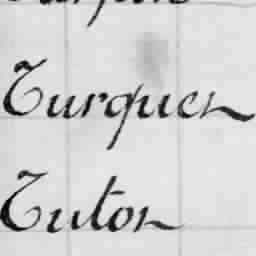 Turquer
Tutor